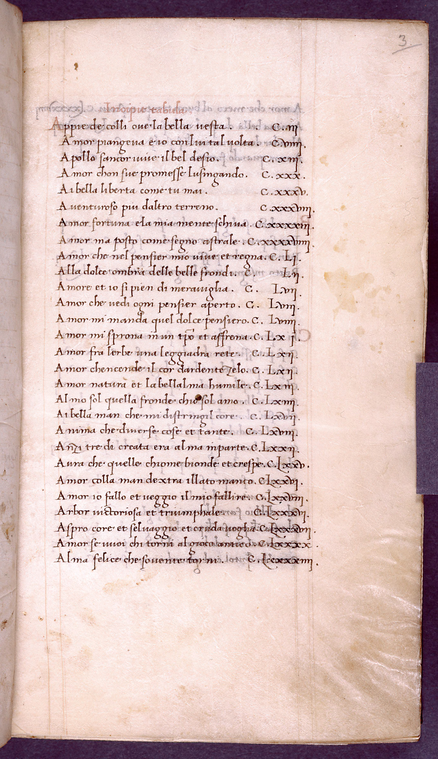 3
Appie de colli oue la bella uesta . C. iii
Amor piangeua e io con lui tal uolta . C. viiii.
Apollo sancor uiue il bel desio. C. xii.
Amor chon sue promesse lusingando. C. xxx.
Ai bella liberta come tu mai. C. xxxv.
Auenturoso piu daltro terreno. C. xxxviiii.
Amor fortuna e la mia mente schiua. C.
Amor ma posto come segno astrale. C.
Amor che nel pensier mio uiue et regna. C. Li.
Alla dolce ombra delle belle frondi. C. Lii.
Amore et io si pien di merauiglia. C. Lvii.
Amor che uedi ogni pensier aperto. C. Lvii.
Amor mi manda quel dolce pensiero. C. Lviiii.
Amor mi sprona in un tpo et affrena. C. Lxi.
Amor fra lerbe una leggiadra rete. C. Lxii.
Amor che ncende il cor dardente zelo. C. Lxii.
Amor natura et la bella lma humile. C. Lxiii.
Almo sol quella fronde chio sol amo. C. Lxiiii.
Ai bella man che mi distringi l core. C. Lxvii.
Anima che diuerse cose et tante. C. Lxviii.
Anzi tre di creata era alma in parte. C. Lxxii.
Aura che quelle chiome bionde et crespe. C. Lxxv.
Amor colla man dextra il lato manco. C. Lxxvi.
Amor io fallo et ueggio il mio fallire. C. Lxxviii.
Arbor uictoriosa et triumphale. C. Lxxxvi.
Aspro core et seluaggio et cruda uoglia. C.
Amor se uuoi chi torni al giogo anticо. C. Lxxxx.
Alma felice che souente torni. C.